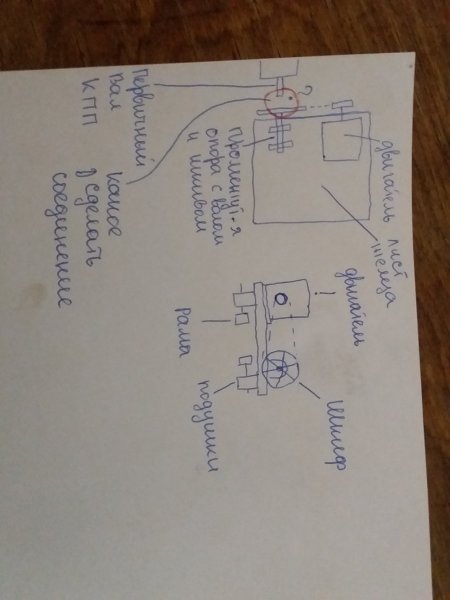 Первичный
Вал
КПП
?
какое
сделать
соединение
Промежут-я
опора с валом
и шкивом
двигатель
лист
железа
двигатель
Рама
подушки
Шкиф